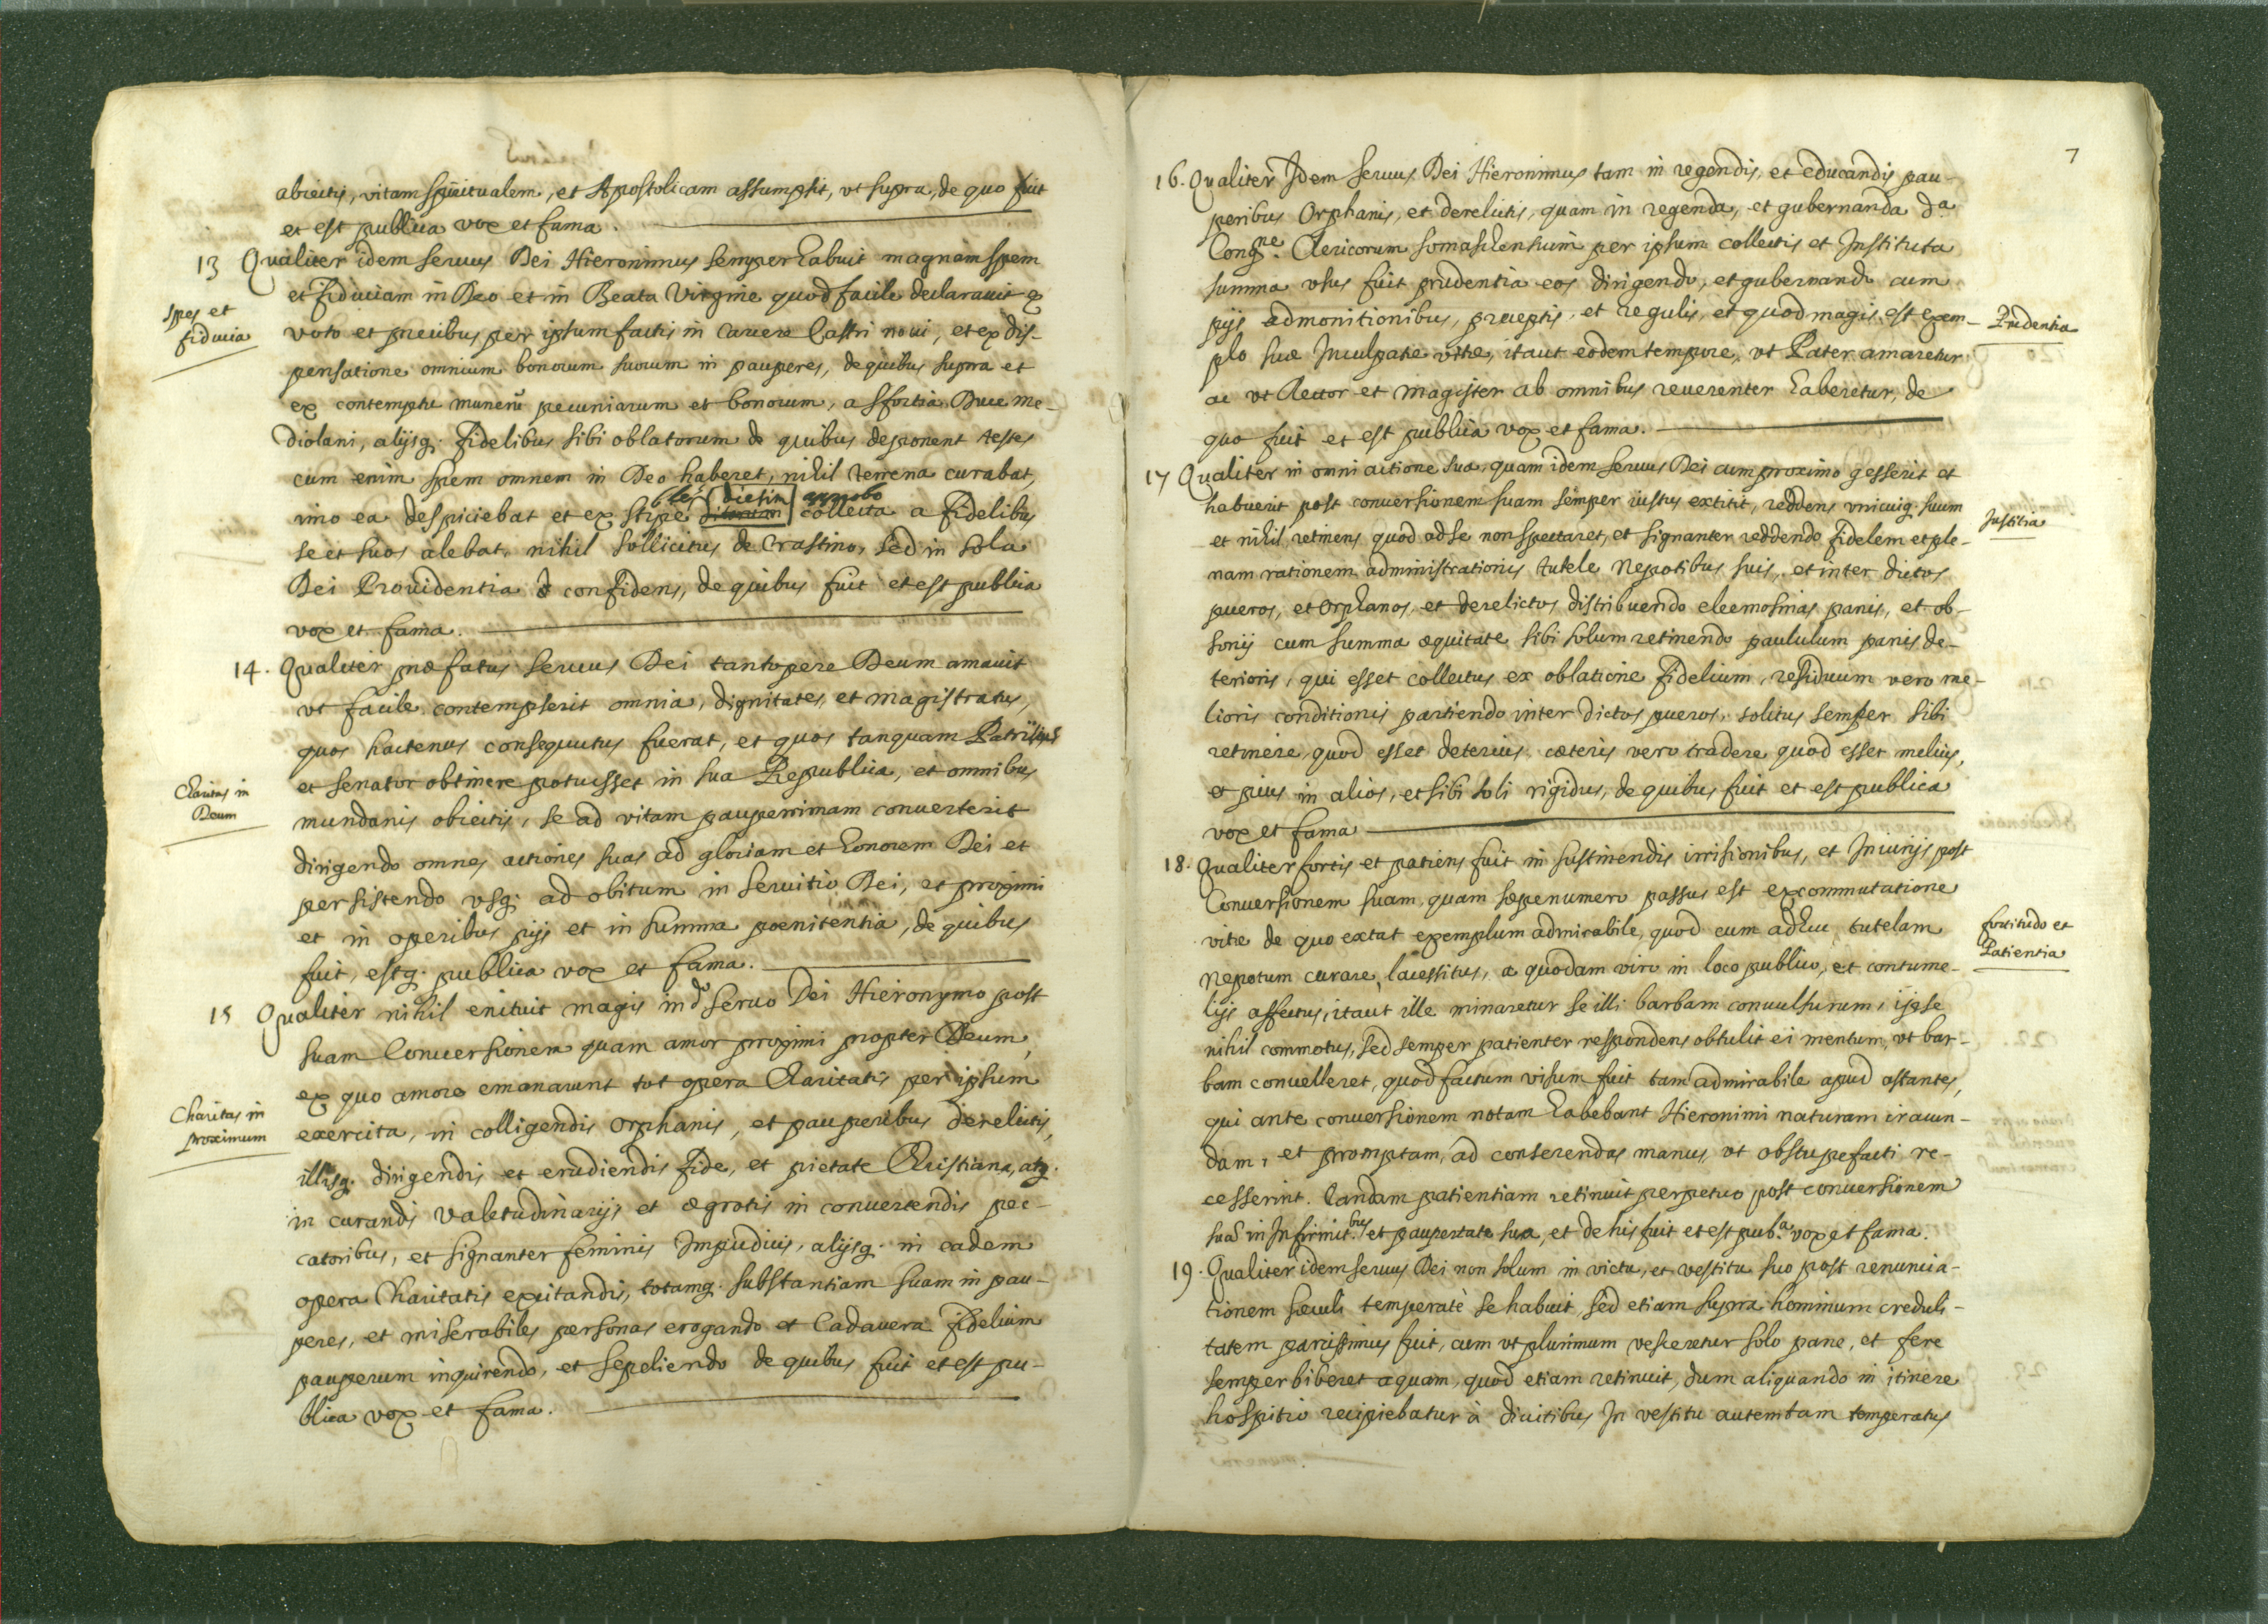 abiectis, vitam spiritualem, et Apostolicam assumpsit, vt supra, de quo fuit
et est publica vox et fama.
13 Qualiter idem seruus Dei Hieronimus semper habuit magnam spem
et fiduciam in Deo et in Beata Virgine quod facile declarauit ex
Spes et
fiducia
voto et precibus per ipsum factis in carcere Castri noui, et ex dis-
pensatione omnium bonorum suorum in pauperes, de quibus supra et
ex contemptu munerũ pecuniarum et bonorum, a Sfortia Duce me-
diolani, alijsq. fidelibus sibi oblatorum de quibus deponent testes
cum enim spem omnem in Deo haberet, nihil terrena curabat,
dietim approbo
imo ea despiciebat et ex stipe collecta a fidelibus
se et suos alebat, nihil sollicitus de Crastino, sed in sola
Dei Prouidentia confidens, de quibus fuit et est publica
vox et fama.
14. Qualiter præfatus seruus Dei tantopere Deum amauit
vt facile contempserit omnia, dignitates, et magistratus,
quos hactenus consequutus fuerat, et quos tanquam Patritius
et senator obtinere potuisset in sua Republica, et omnibus
Charitas in
Deum
mundanis abiectis, se ad vitam pauperrimam conuerterit
dirigendo omnes actiones suas ad gloriam et honorem Dei et
persistendo vsq. ad obitum in seruitio Dei, et proximi
et in operibus pijs et in summa poenitentia, de quibus
fuit, estq. publica vox et fama.
15 Qualiter nihil enituit magis in do seruo Dei Hieronymo post
suam Conuersionem quam amor proximi propter Deum,
ex quo amore emanarunt tot opera Charitatis per ipsum
Charitas in
proximum
exercita, in colligendis orphanis, et pauperibus derelictis,
illisq. dirigendis et erudiendis fide, et pietate Christiana, atq.
in curandis valetudinarijs et ægrotis in conuertendis pec-
catoribus, et signanter feminis Impudicis, alijsq. in eadem
opera Charitatis excitandis, totamq. substantiam suam in pau-
peres, et miserabiles personas erogando et Cadauera fidelium
pauperum inquirendo, et sepeliendo de quibus fuit et est pu-
blica vox et fama.
7
16. Qualiter Idem seruus Dei Hieronimus tam in regendis, et educandis pau-
peribus Orphanis, et derelictis, quam in regenda, et gubernanda da
Congne. Clericorum somaschensium per ipsum collectis et Instituta
summa vsus fuit prudentia eos dirigendo, et gubernando cum
pijs admonitionibus, præceptis, et regulis, et quod magis est exem-
Prudentia
plo suæ Inculpatæ vitæ, itaut eodem tempore, vt Pater amaretur
ac vt Rector et magister ab omnibus reuerenter haberetur, de
quo fuit et est publica vox et fama.
17 Qualiter in omni actione sua, quam idem seruus Dei cum proximo gesserit et
habuerit post conuersionem suam semper iustus extitit, reddens vnicuiq. suum
Justitia
et nihil retinens quod ad se non spectaret, et signanter reddendo fidelem et ple-
nam rationem administrationis tutele Nepotibus suis, et inter dictos
pueros, et orphanos et derelictos distribuendo eleemosinas panis, et ob-
sonij cum summa æquitate sibi solum retinendo paululum panis de-
terioris, qui esset collectus ex oblatione fidelium, residuum vero me-
lioris conditionis partiendo inter dictos pueros, solitus semper sibi
retinere quod esset deterius cæteris vero tradere quod esset melius,
et pius in alios, et sibi soli rigidus, de quibus fuit et est publica
vox et fama
18. Qualiter fortis et patiens fuit in sustinendis irrisionibus, et Iniurijs post
Conuersionem suam, quam sæpenumero passus est ex commutatione
vitæ de quo extat exemplum admirabile, quod cum adhuc tutelam
fortitudo et
Patientia
Nepotum curare, lacessitus, a quodam viro in loco publico, et contume-
lijs affectus, itaut ille minaretur se illi barbam conuulsurum, ipse
nihil commotus, sed semper patienter respondens obtulit ei mentum, vt bar-
bam conuelleret, quod factum visum fuit tam admirabile apud astantes,
qui ante conuersionem notam habebant Hieronimi naturam iracun-
dam, et promptam, ad conserendas manus, vt obstupefacti re-
cesserint. Eandam patientiam retinuit perpetuo post conuersionem
suã in Infirmit.bus et paupertate sua, et de his fuit et est pub.a vox et fama.
19. Qualiter idem seruus Dei non solum in victu, et vestitu suo post renuncia-
tionem sæculi temperatè se habuit, sed etiam supra hominum creduli-
tatem parcissimus fuit, cum vt plurimum vesceretur solo pane, et fere
semper biberet aquam, quod etiam retinuit, dum aliquando in itinere
hospitio recipiebatur à diuitibus In vestitu autem tam temperatus